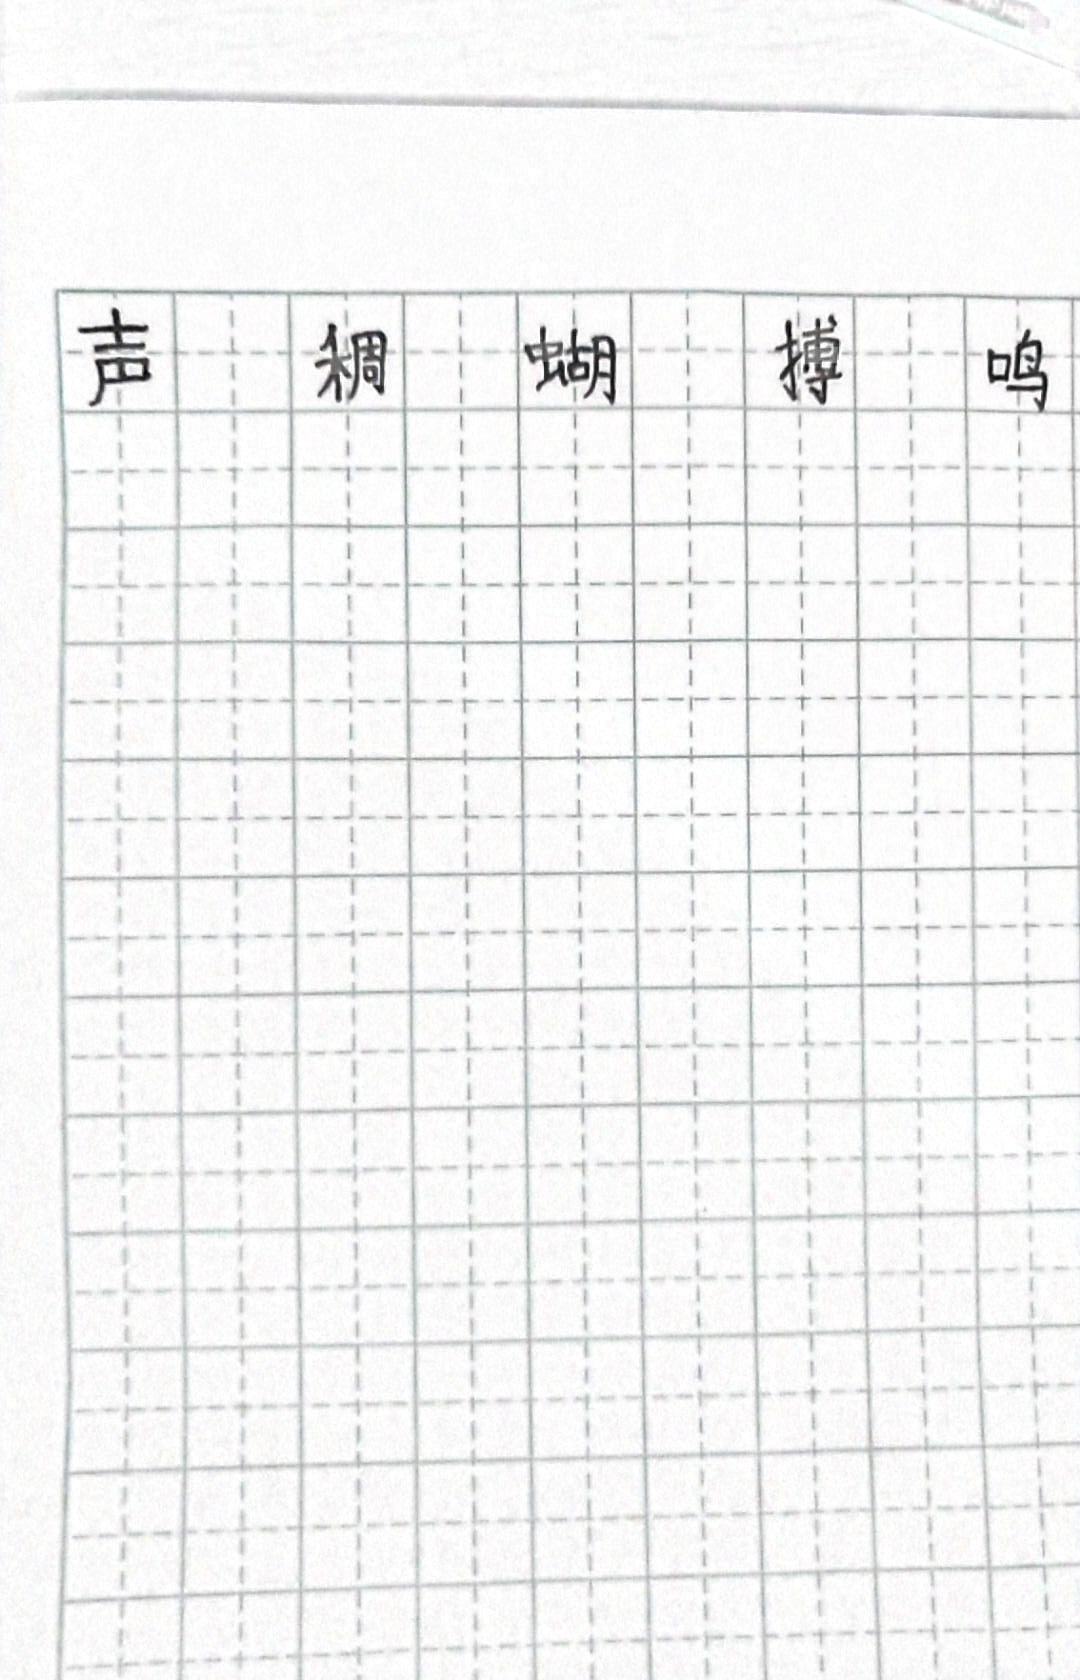 声 稠 蝴 搏 鸣